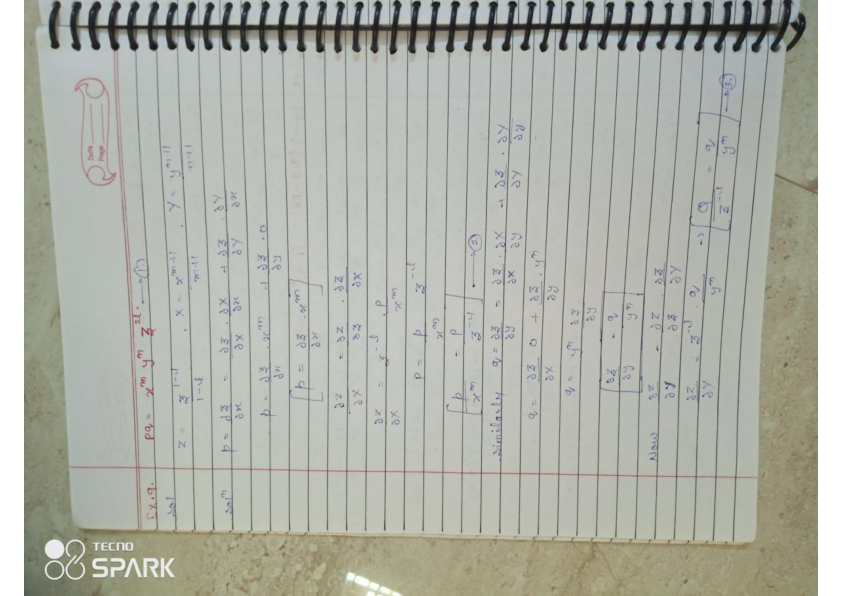 Date
Page
Ex.9. pq = x^m y^n z^2l. → (1)
Sol z = z^(1-l)/(1-l) , X = x^(m+1)/(m+1) , Y = y^(n+1)/(n+1)
Sol^n p = ∂z/∂x = ∂z/∂X · ∂X/∂x + ∂z/∂Y · ∂Y/∂x
p = ∂z/∂x · x^m + ∂z/∂y · 0
[p = ∂z/∂x · x^m]
∂z/∂X = ∂z/∂z · ∂z/∂X
∂z/∂X = z^-l · p/x^m
P = p/x^m z^-l
[p/x^m = P/z^-l] → (2)
Similarly q = ∂z/∂y = ∂z/∂x · ∂X/∂y + ∂z/∂Y · ∂Y/∂y
q = ∂z/∂x · 0 + ∂z/∂y · y^n
q = y^n · ∂z/∂y
[∂z/∂y = q/y^n]
Now ∂z/∂Y = ∂z/∂z ∂z/∂Y
∂z/∂Y = z^-l · q/y^n → [Q/z^-l = q/y^n] → (3)
TECNO
SPARK